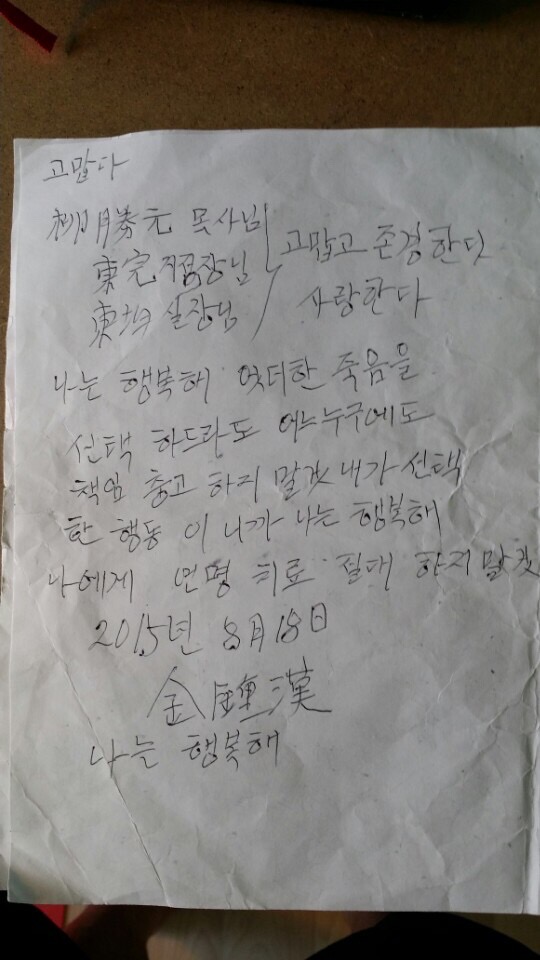 고맙다
柳勝元 목사님
東完 지점장님 고맙고 존경한다
東均 실장님 사랑한다
나는 행복해 엇더한 죽음을
선택 하드라도 어느누구에도
책임 충고 하지 말것 내가 선택
한 행동 이니까 나는 행복해
나에게 연명 치료 절대 하지말것
2015년 8월 18日
金鍾漢
나는 행복해